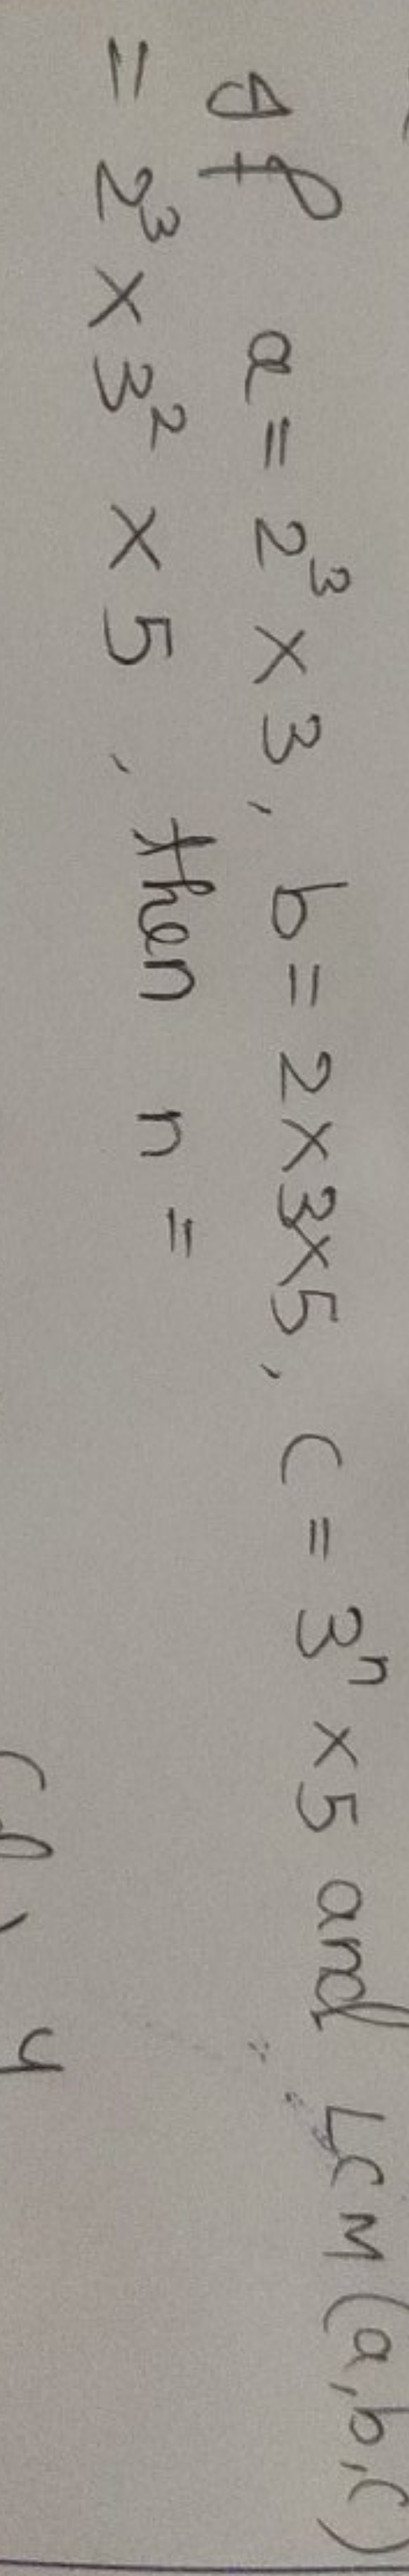 If a = 2³ × 3, b = 2×3×5, c = 3ⁿ × 5 and LCM (a,b,c)
= 2³ × 3² × 5, then n =
(d) 4